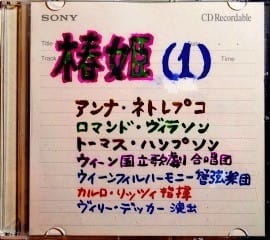 SONY
CD Recordable
Title
Track
Time
椿姫(1)
アンナ・ネトレプコ
ロマンド・ヴィラソン
トーマス・ハンプソン
ウィーン国立歌劇合唱団
ウィーンフィルハーモニー管弦楽団
カルロ・リッツィ指揮
ヴィリー・デッカー演出